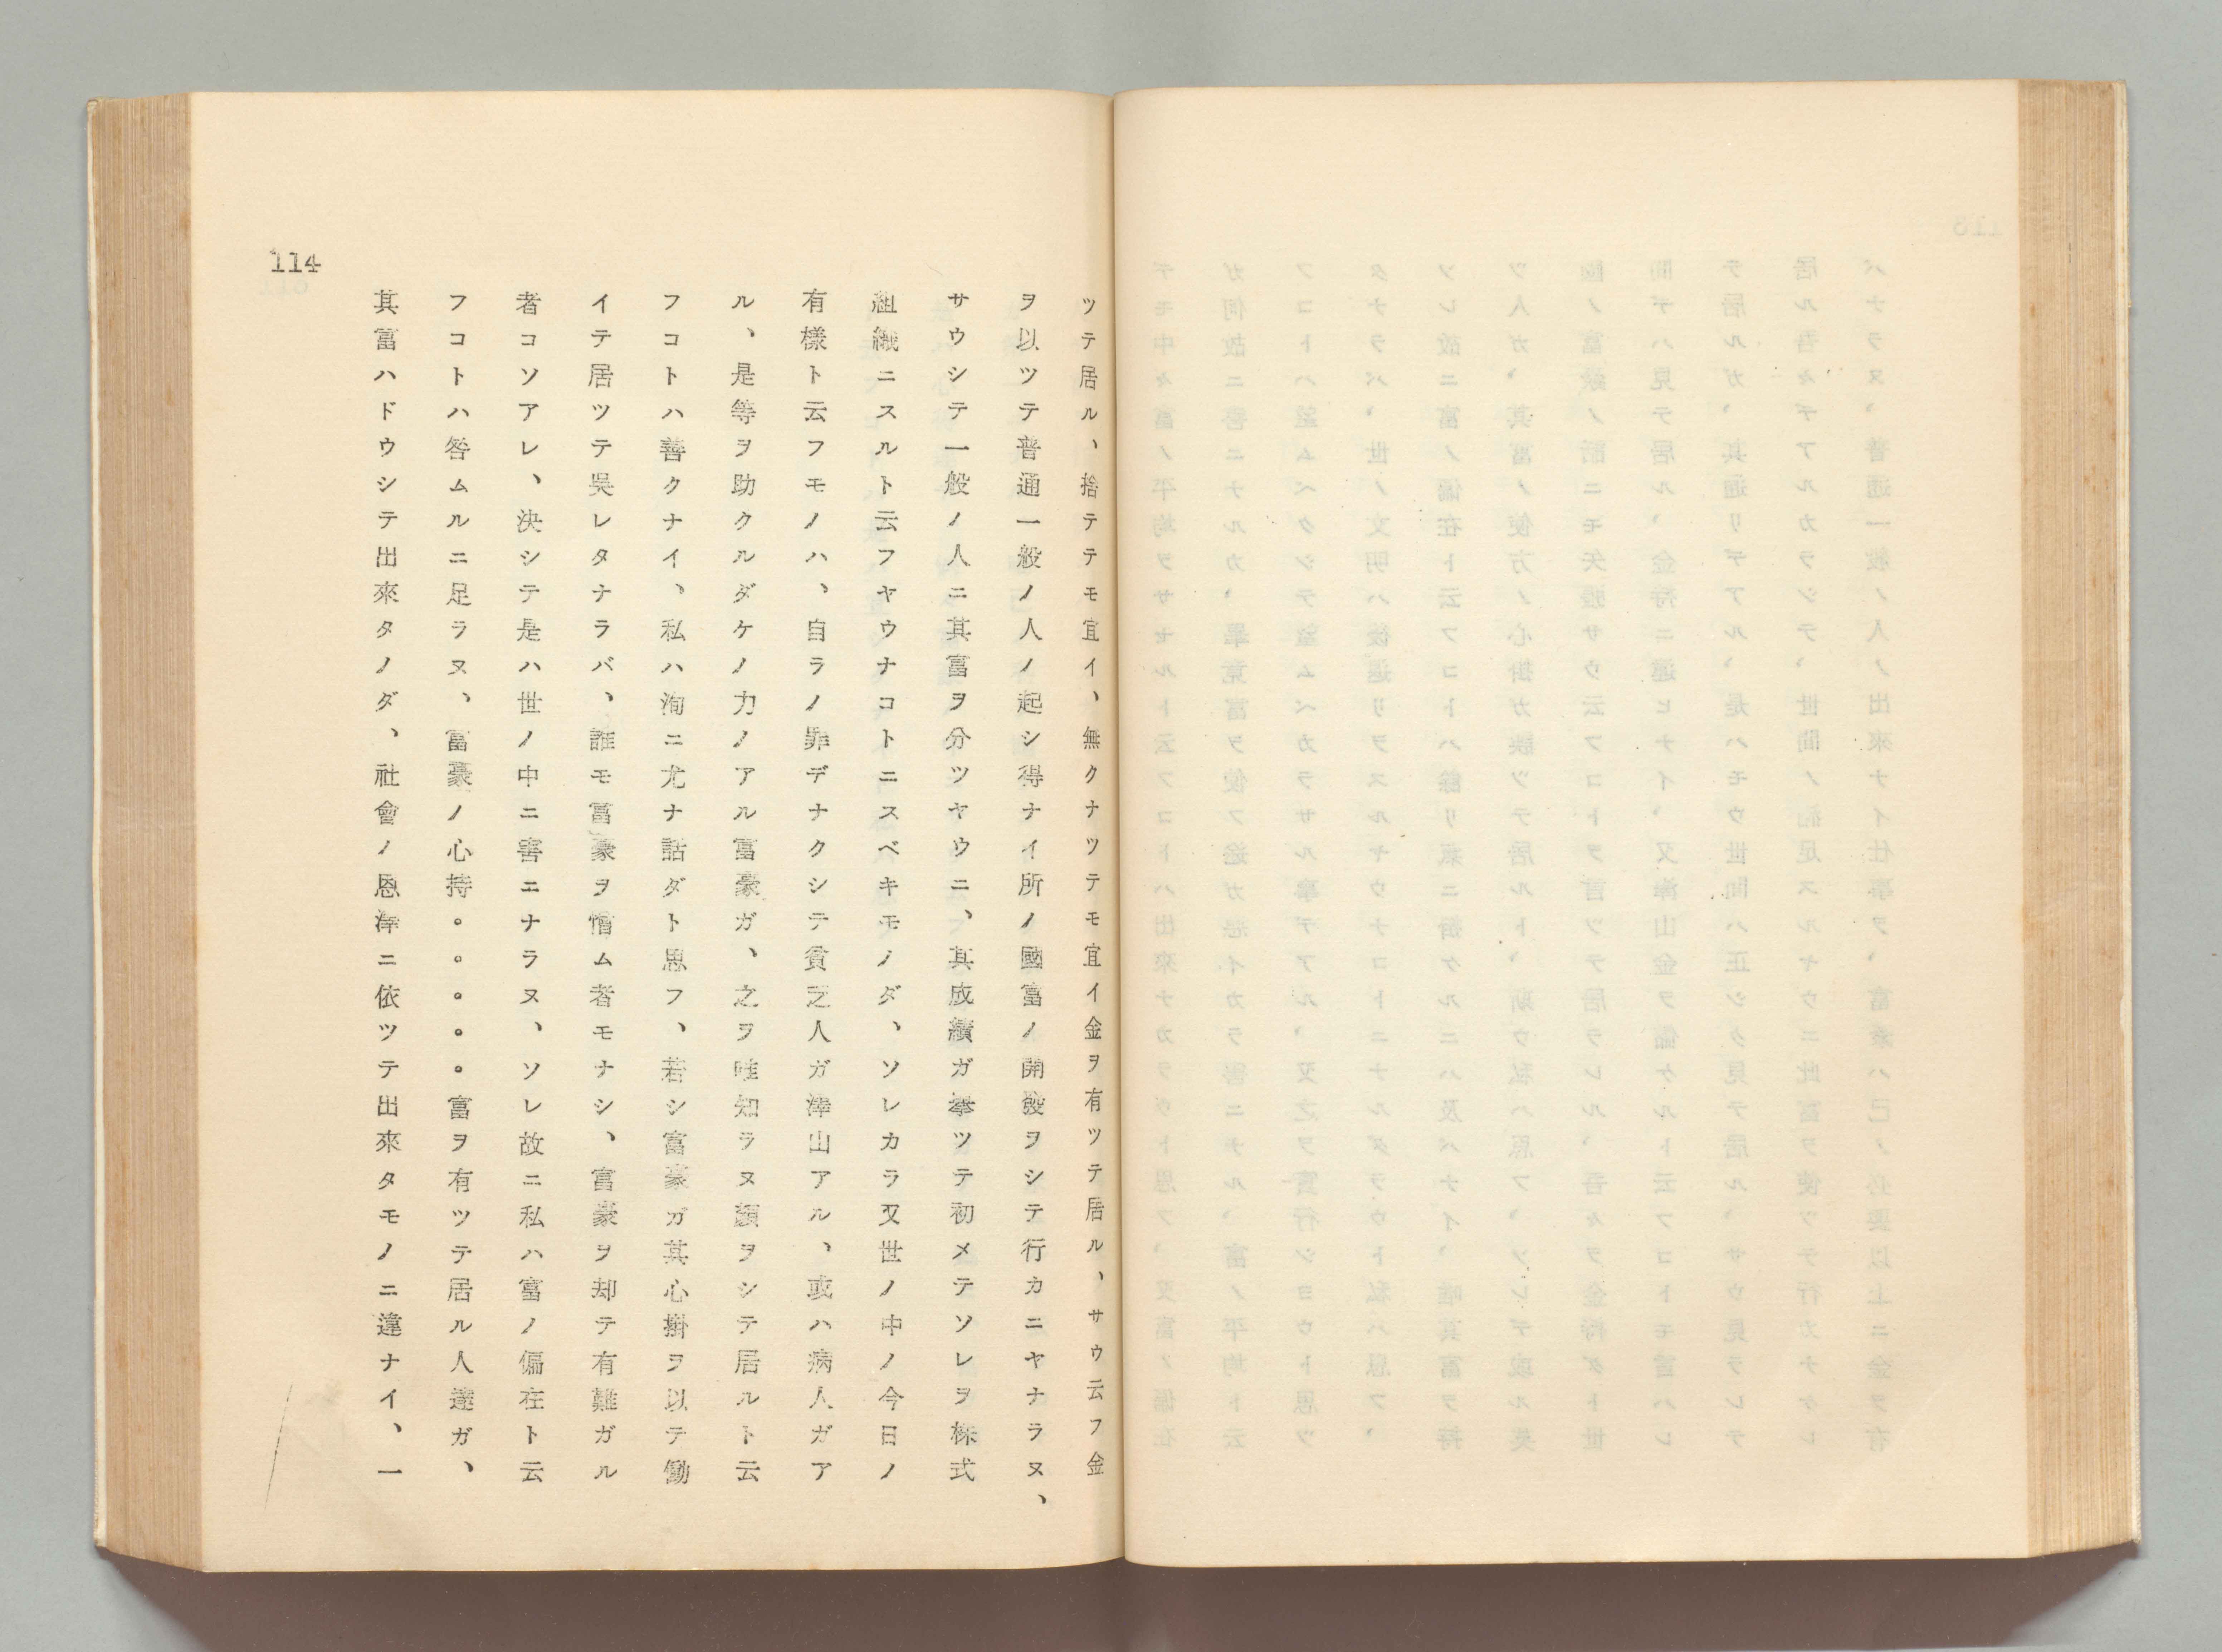 ツテ居ル、捨テテモ宜イ、無クナツテモ宜イ金ヲ有ツテ居ル、サウ云フ金
ヲ以ツテ普通一般ノ人ノ起シ得ナイ所ノ國富ノ開發ヲシテ行カニヤナラヌ、
サウシテ一般ノ人ニ其富ヲ分ツヤウニ、其成績ガ擧ツテ初メテソレヲ株式
組織ニスルト云フヤウナコトニスベキモノダ、ソレカラ又世ノ中ノ今日ノ
有樣ト云フモノハ、自ラノ罪デナクシテ貧乏人ガ澤山アル、或ハ病人ガア
ル、是等ヲ助クルダケノ力ノアル富豪ガ、之ヲ唯知ラヌ顏ヲシテ居ルト云
フコトハ善クナイ、私ハ洵ニ尤ナ話ダト思フ、若シ富豪ガ其心掛ヲ以テ働
イテ居ツテ呉レタナラバ、誰モ富豪ヲ憎ム者モナシ、富豪ヲ却テ有難ガル
者コソアレ、決シテ是ハ世ノ中ニ害ニナラヌ、ソレ故ニ私ハ富ノ偏在ト云
フコトハ咎ムルニ足ラヌ、富豪ノ心持。。。。。富ヲ有ツテ居ル人達ガ、
其富ハドウシテ出來タノダ、社會ノ恩澤ニ依ツテ出來タモノニ違ナイ、一
114